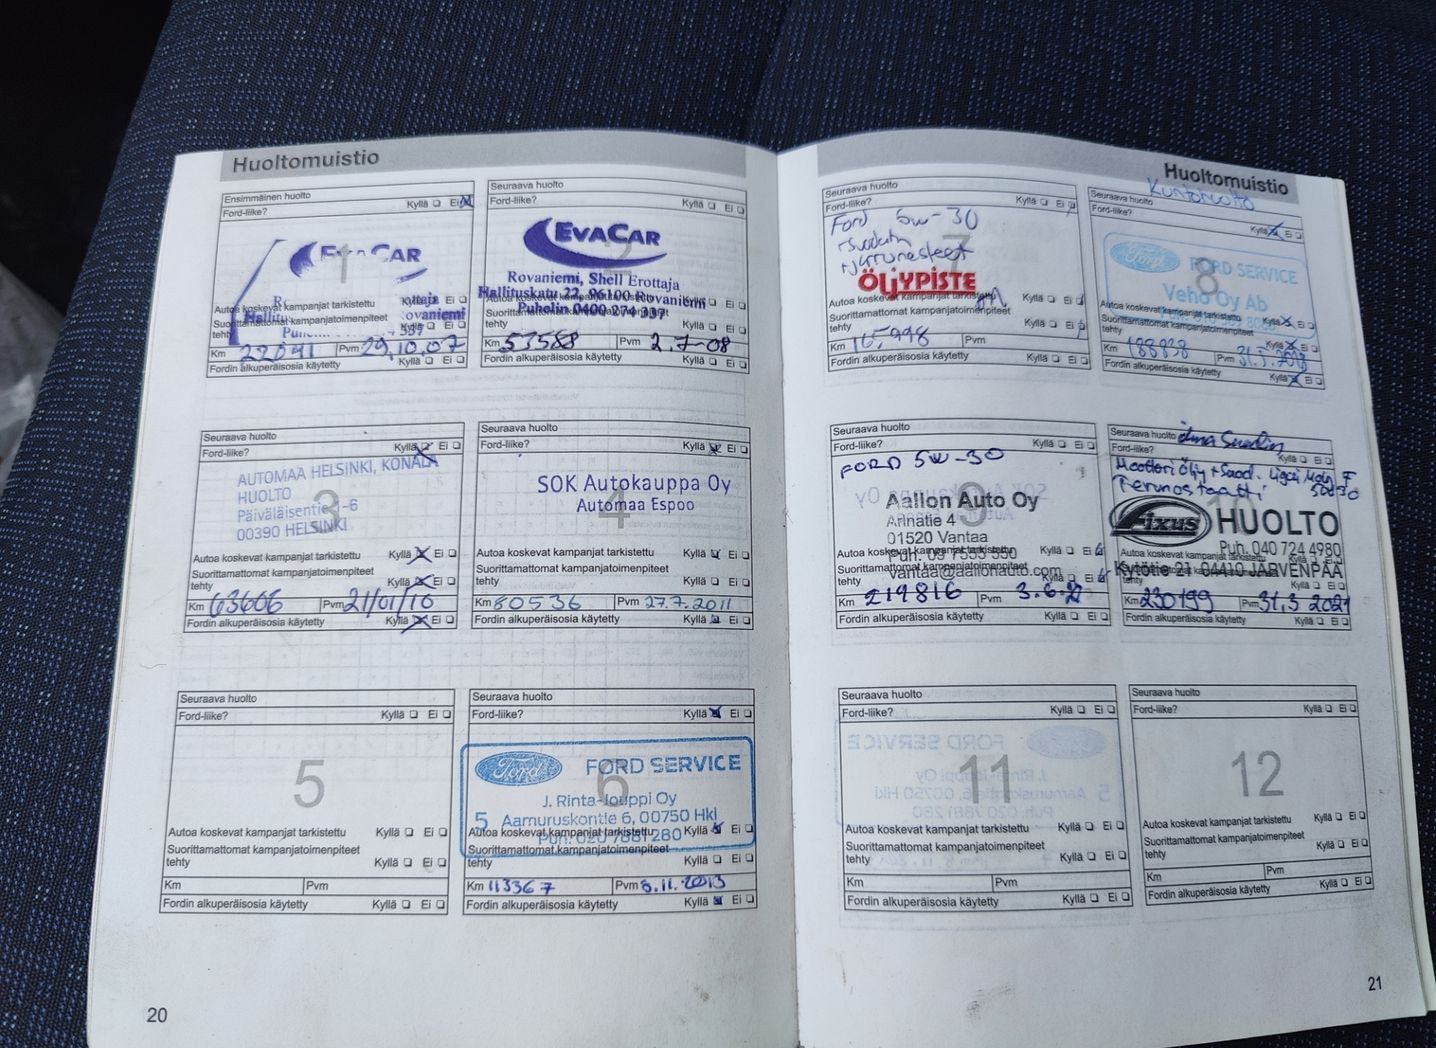 Huoltomuistio
Ensimmäinen huolto
Ford-liike? Kyllä Ei
1
EVACAR
Autoa koskevat kampanjat tarkistettu Kyllä Ei
Suorittamattomat kampanjatoimenpiteet
tehty Kyllä Ei
Km Pvm 29.10.07
Fordin alkuperäisosia käytetty Kyllä Ei
Seuraava huolto
Ford-liike? Kyllä Ei
2
EVACAR
Rovaniemi, Shell Erottaja
Hallituskatu 22, 96100 Rovaniemi
Puhelin 0400 274 337
Autoa koskevat kampanjat tarkistettu Kyllä Ei
Suorittamattomat kampanjatoimenpiteet
tehty Kyllä Ei
Km 53588 Pvm 2.7-08
Fordin alkuperäisosia käytetty Kyllä Ei
Seuraava huolto
Ford-liike? Kyllä Ei
3
AUTOMAA HELSINKI, KONALA
HUOLTO
00390 HELSINKI
Autoa koskevat kampanjat tarkistettu Kyllä Ei
Suorittamattomat kampanjatoimenpiteet
tehty Kyllä Ei
Km 63606 Pvm 21/01/10
Fordin alkuperäisosia käytetty Kyllä Ei
Seuraava huolto
Ford-liike? Kyllä Ei
4
SOK Autokauppa Oy
Automaa Espoo
Autoa koskevat kampanjat tarkistettu Kyllä Ei
Suorittamattomat kampanjatoimenpiteet
tehty Kyllä Ei
Km 80536 Pvm 27.7.2011
Fordin alkuperäisosia käytetty Kyllä Ei
Seuraava huolto
Ford-liike? Kyllä Ei
5
Autoa koskevat kampanjat tarkistettu Kyllä Ei
Suorittamattomat kampanjatoimenpiteet
tehty Kyllä Ei
Km Pvm
Fordin alkuperäisosia käytetty Kyllä Ei
Seuraava huolto
Ford-liike? Kyllä Ei
6
Ford FORD SERVICE
J. Rinta-Jouppi Oy
5 Aarnuruskontie 6, 00750 Hki
Puh. 020 7881 280
Autoa koskevat kampanjat tarkistettu Kyllä Ei
Suorittamattomat kampanjatoimenpiteet
tehty Kyllä Ei
Km 113367 Pvm 8.11.2013
Fordin alkuperäisosia käytetty Kyllä Ei
20
Huoltomuistio
Seuraava huolto
Ford-liike? Kyllä Ei
7
Ford 5w-30
ÖLJYPISTE
Autoa koskevat kampanjat tarkistettu Kyllä Ei
Suorittamattomat kampanjatoimenpiteet
tehty Kyllä Ei
Km Pvm
Fordin alkuperäisosia käytetty Kyllä Ei
Kuntohuolto
Seuraava huolto
Ford-liike? Kyllä Ei
8
Ford FORD SERVICE
Veho Oy Ab
Autoa koskevat kampanjat tarkistettu Kyllä Ei
Suorittamattomat kampanjatoimenpiteet
tehty Kyllä Ei
Km 188838 Pvm
Fordin alkuperäisosia käytetty Kyllä Ei
Seuraava huolto
Ford-liike? Kyllä Ei
FORD 5W-30
9
Aallon Auto Oy
Arinatie 4
01520 Vantaa
Puh. 09 7555 550
vantaa@aallonauto.com
Autoa koskevat kampanjat tarkistettu Kyllä Ei
Suorittamattomat kampanjatoimenpiteet
tehty Kyllä Ei
Km 219816 Pvm
Fordin alkuperäisosia käytetty Kyllä Ei
Seuraava huolto
Ford-liike? Kyllä Ei
Moottori Öljy
10
Fixus HUOLTO
Puh. 040 724 4980
Kytötie 21 04410 JÄRVENPÄÄ
Autoa koskevat kampanjat tarkistettu Kyllä Ei
Suorittamattomat kampanjatoimenpiteet
tehty Kyllä Ei
Km 230199 Pvm 31,3 2021
Fordin alkuperäisosia käytetty Kyllä Ei
Seuraava huolto
Ford-liike? Kyllä Ei
11
Autoa koskevat kampanjat tarkistettu Kyllä Ei
Suorittamattomat kampanjatoimenpiteet
tehty Kyllä Ei
Km Pvm
Fordin alkuperäisosia käytetty Kyllä Ei
Seuraava huolto
Ford-liike? Kyllä Ei
12
Autoa koskevat kampanjat tarkistettu Kyllä Ei
Suorittamattomat kampanjatoimenpiteet
tehty Kyllä Ei
Km Pvm
Fordin alkuperäisosia käytetty Kyllä Ei
21